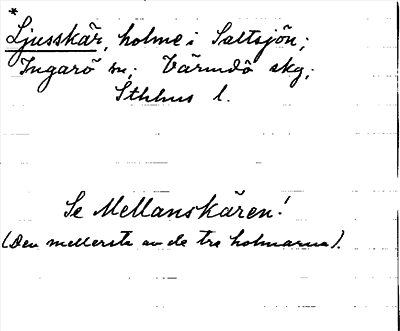 *
Ljusskär, holme i Saltsjön;
Ingarö sn; Värmdö skg;
Sthlms l.
Se Mellanskären!
(Den mellersta av de tre holmarna).